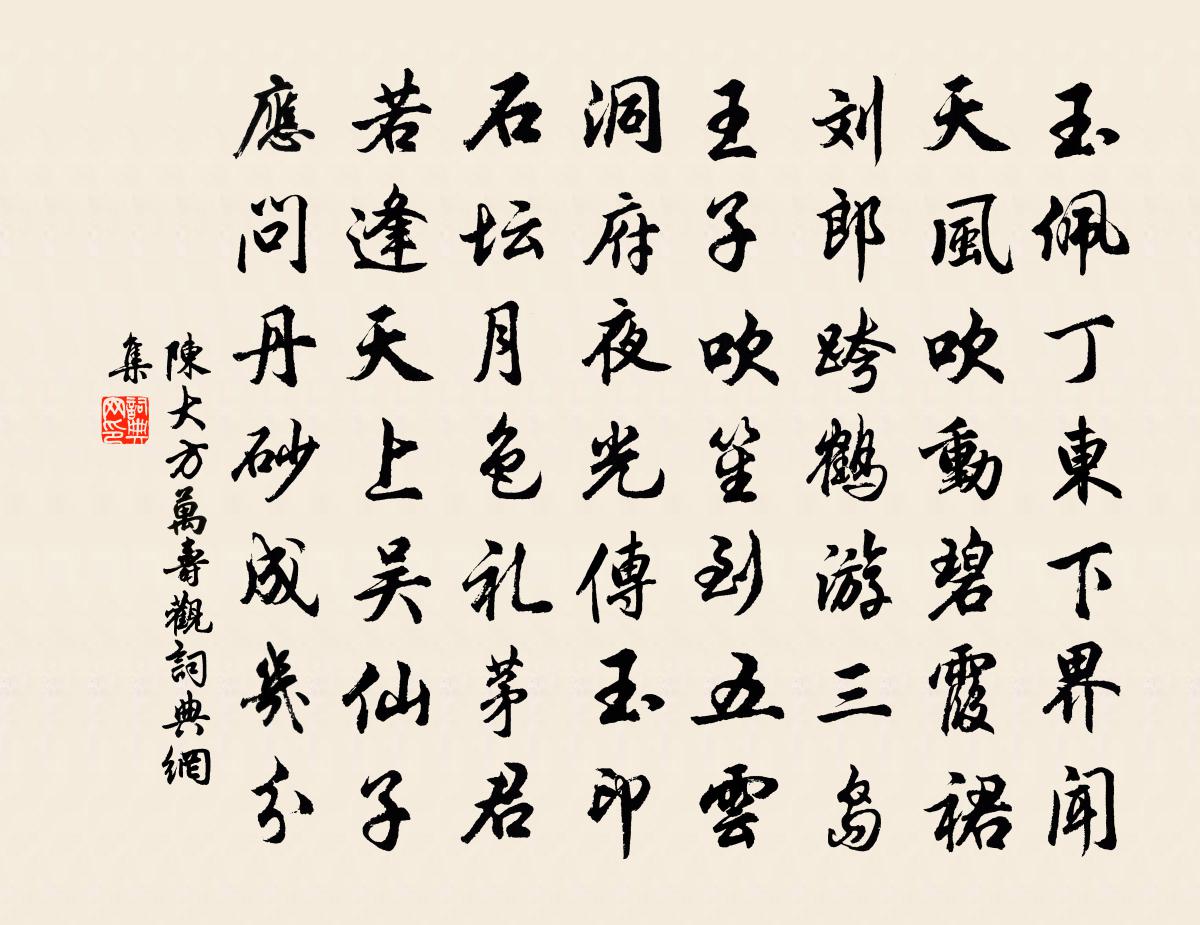 玉佩丁東下界闻
天風吹動碧霞裙
刘郎跨鹤游三岛
王子吹笙到五雲
洞府夜光傳玉印
石坛月色礼茅君
若逢天上吴仙子
應问丹砂成幾分
陳大方萬壽觀詞典網
集
詞典
网印